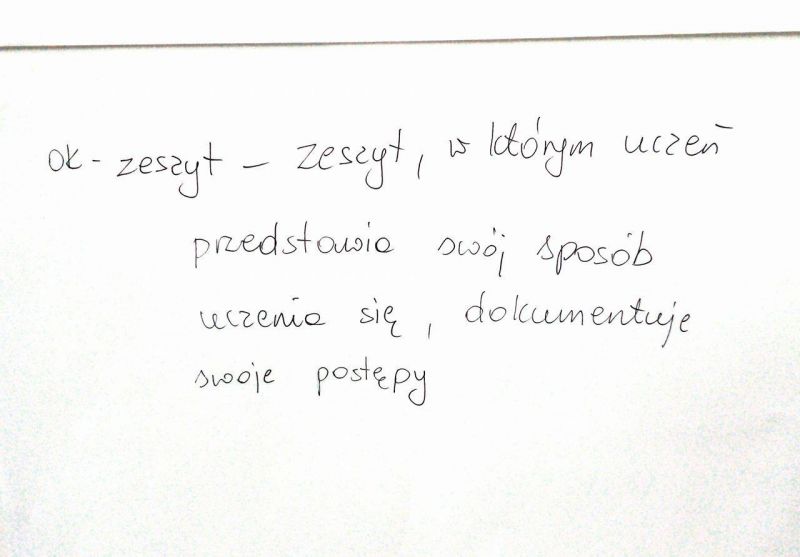 ok - zeszyt – zeszyt, w którym uczeń
przedstawia swój sposób
uczenia się, dokumentuje
swoje postępy